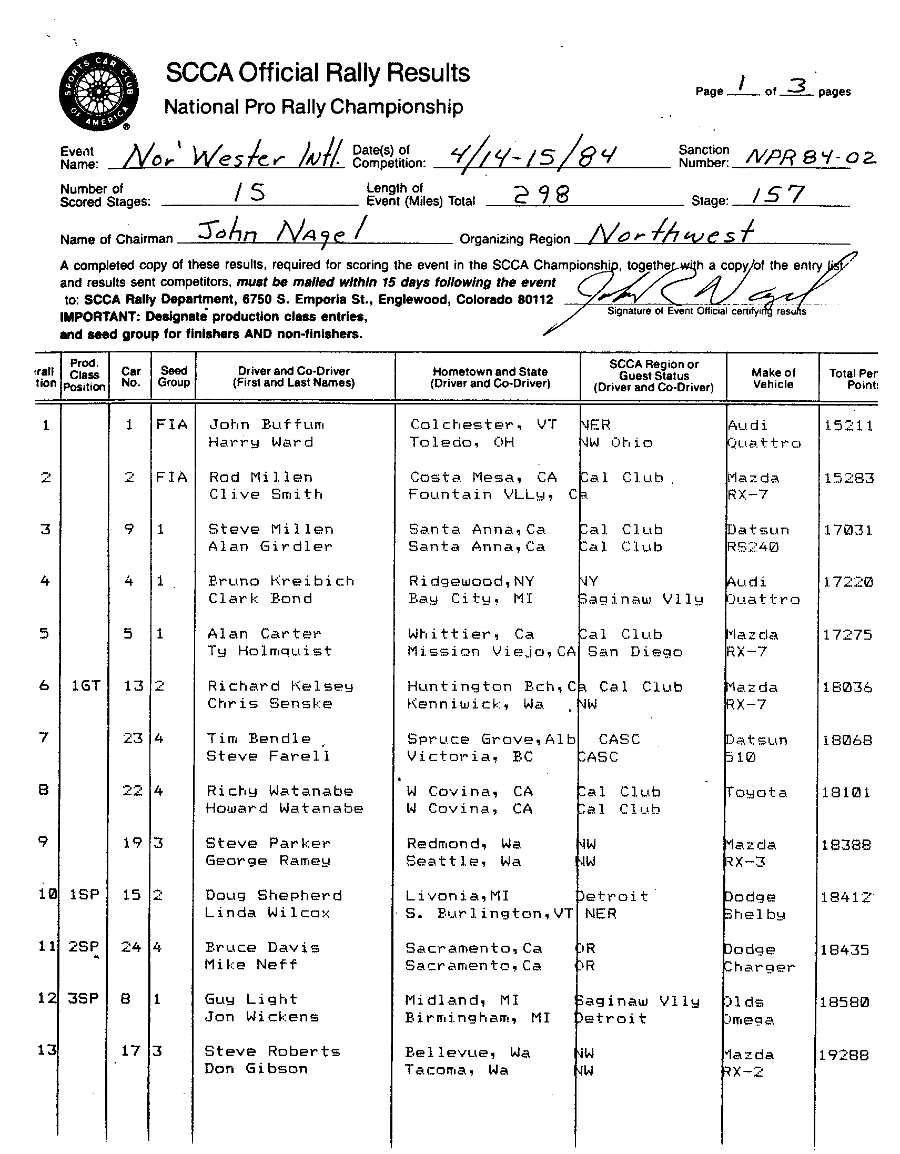 SPORTS CAR CLUB OF AMERICA
®
SCCA Official Rally Results
National Pro Rally Championship
Page 1 of 3 pages
Event Name: Nor' Wester Intl. Date(s) of Competition: 4/14-15/84 Sanction Number: NPR84-02
Number of Scored Stages: 15 Length of Event (Miles) Total 298 Stage: 157
Name of Chairman John Nagel Organizing Region Northwest
A completed copy of these results, required for scoring the event in the SCCA Championship, together with a copy of the entry list
and results sent competitors, must be mailed within 15 days following the event
to: SCCA Rally Department, 6750 S. Emporia St., Englewood, Colorado 80112
John C Nagel
IMPORTANT: Designate production class entries,
Signature of Event Official certifying results
and seed group for finishers AND non-finishers.
rall tion Prod. Class Position Car No. Seed Group Driver and Co-Driver (First and Last Names) Hometown and State (Driver and Co-Driver) SCCA Region or Guest Status (Driver and Co-Driver) Make of Vehicle Total Per Points
1 1 FIA John Buffum Colchester, VT NER Audi 15211
Harry Ward Toledo, OH NW Ohio Quattro
2 2 FIA Rod Millen Costa Mesa, CA Cal Club Mazda 15283
Clive Smith Fountain VLLy, Ca RX-7
3 9 1 Steve Millen Santa Anna,Ca Cal Club Datsun 17031
Alan Girdler Santa Anna,Ca Cal Club RS240
4 4 1 Bruno Kreibich Ridgewood,NY NY Audi 17220
Clark Bond Bay City, MI Saginaw Vlly Quattro
5 5 1 Alan Carter Whittier, Ca Cal Club Mazda 17275
Ty Holmquist Mission Viejo,CA San Diego RX-7
6 1GT 13 2 Richard Kelsey Huntington Bch,Ca Cal Club Mazda 18036
Chris Senske Kenniwick, Wa NW RX-7
7 23 4 Tim Bendle Spruce Grove,Alb CASC Datsun 18068
Steve Farell Victoria, BC CASC 510
8 22 4 Richy Watanabe W Covina, CA Cal Club Toyota 18101
Howard Watanabe W Covina, CA Cal Club
9 19 3 Steve Parker Redmond, Wa NW Mazda 18388
George Ramey Seattle, Wa NW RX-3
10 1SP 15 2 Doug Shepherd Livonia,MI Detroit Dodge 18412
Linda Wilcox S. Burlington,VT NER Shelby
11 2SP 24 4 Bruce Davis Sacramento,Ca OR Dodge 18435
Mike Neff Sacramento,Ca OR Charger
12 3SP 8 1 Guy Light Midland, MI Saginaw Vlly Olds 18580
Jon Wickens Birmingham, MI Detroit Omega
13 17 3 Steve Roberts Bellevue, Wa NW Mazda 19288
Don Gibson Tacoma, Wa NW RX-2